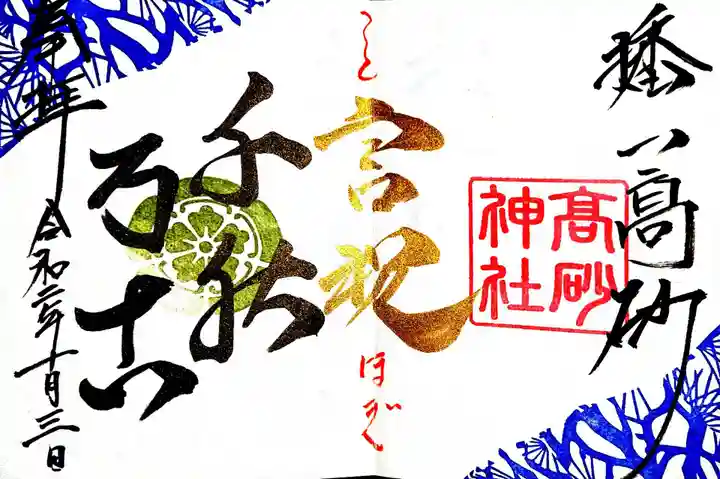 播州高砂
高砂
神社
こと
言祝
ほぐ
千秋
万古
奉拝
令和二年十月三日